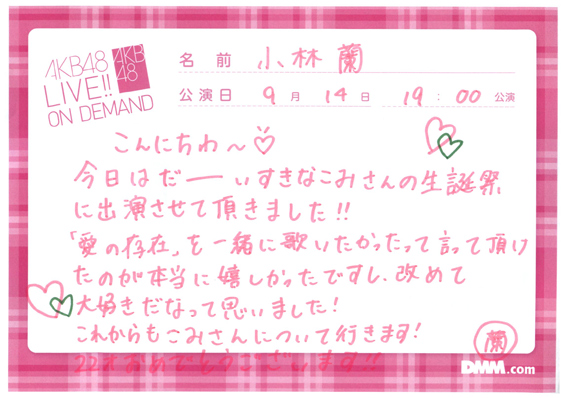 AKB48
LIVE!!
ON DEMAND
AKB
48
名前 小林蘭
公演日 9月14日 19:00公演
こんにちわ〜♡
今日はだーーいすきなこみさんの生誕祭
に出演させて頂きました!!
「愛の存在」を一緒に歌いたかったって言って頂け
たのが本当に嬉しかったですし、改めて
大好きだなって思いました!
これからもこみさんについて行きます!
22才おめでとうございます!!
蘭
DMM.com